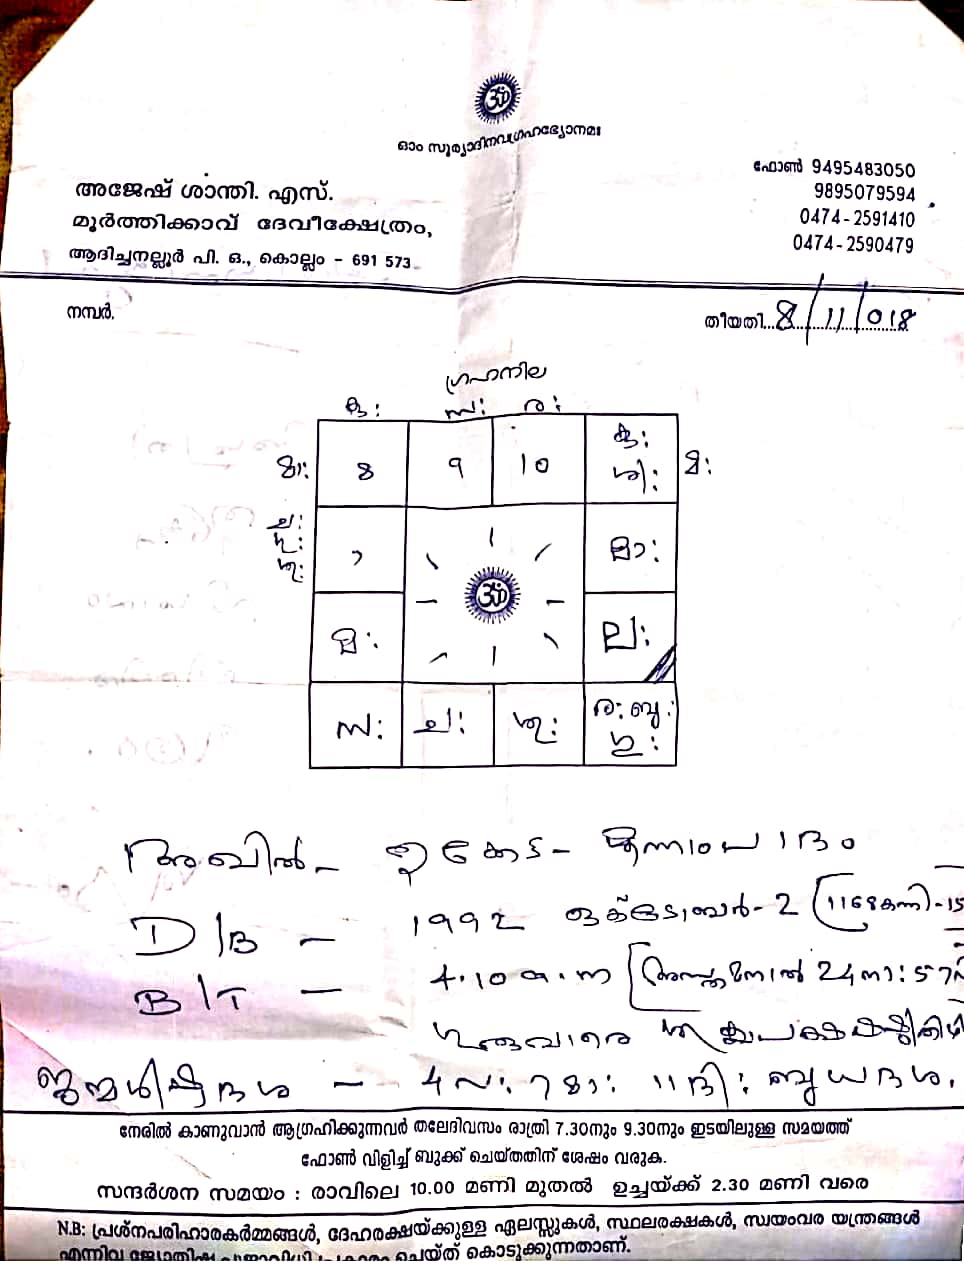 ഓം സൂര്യാദിനവഗ്രഹഭ്യോനമഃ
അജേഷ് ശാന്തി. എസ്.
മൂർത്തിക്കാവ് ദേവീക്ഷേത്രം,
ആദിച്ചനല്ലൂർ പി. ഒ., കൊല്ലം - 691 573
ഫോൺ 9495483050
9895079594
0474-2591410
0474-2590479
നമ്പർ.
തീയതി. 8/11/018
ഗ്രഹനില
കു: സ: ര:
മാ: 8 9 10 കു: ശി: മ:
ച:
മാ:
ല:
സ: ച: ശു: ര: ബു:
അഖിൽ -
D/B - 1992 ഒക്ടോബർ - 2 (1168 കന്നി - 15
B/T - 4.10 a.m
ജന്മശിഷ്ടദശ - 4 വ: 7 മാ: 11 ദി: ബുധദശ.
നേരിൽ കാണുവാൻ ആഗ്രഹിക്കുന്നവർ തലേദിവസം രാത്രി 7.30നും 9.30നും ഇടയിലുള്ള സമയത്ത്
ഫോൺ വിളിച്ച് ബുക്ക് ചെയ്തതിന് ശേഷം വരുക.
സന്ദർശന സമയം : രാവിലെ 10.00 മണി മുതൽ ഉച്ചയ്ക്ക് 2.30 മണി വരെ
N.B: പ്രശ്നപരിഹാരകർമ്മങ്ങൾ, ദേഹരക്ഷയ്ക്കുള്ള ഏലസ്സുകൾ, സ്ഥലരക്ഷകൾ, സ്വയംവര യന്ത്രങ്ങൾ
എന്നിവ ജ്യോതിഷ പൂജാവിധി പ്രകാരം ചെയ്ത് കൊടുക്കുന്നതാണ്.